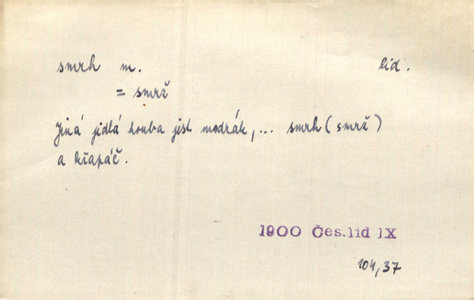 smrh m. lid.
= smrž
Jiná jedlá houba jest modrák, ... smrh (smrž)
a křapáč.
1900 Čes.lid IX
104,37